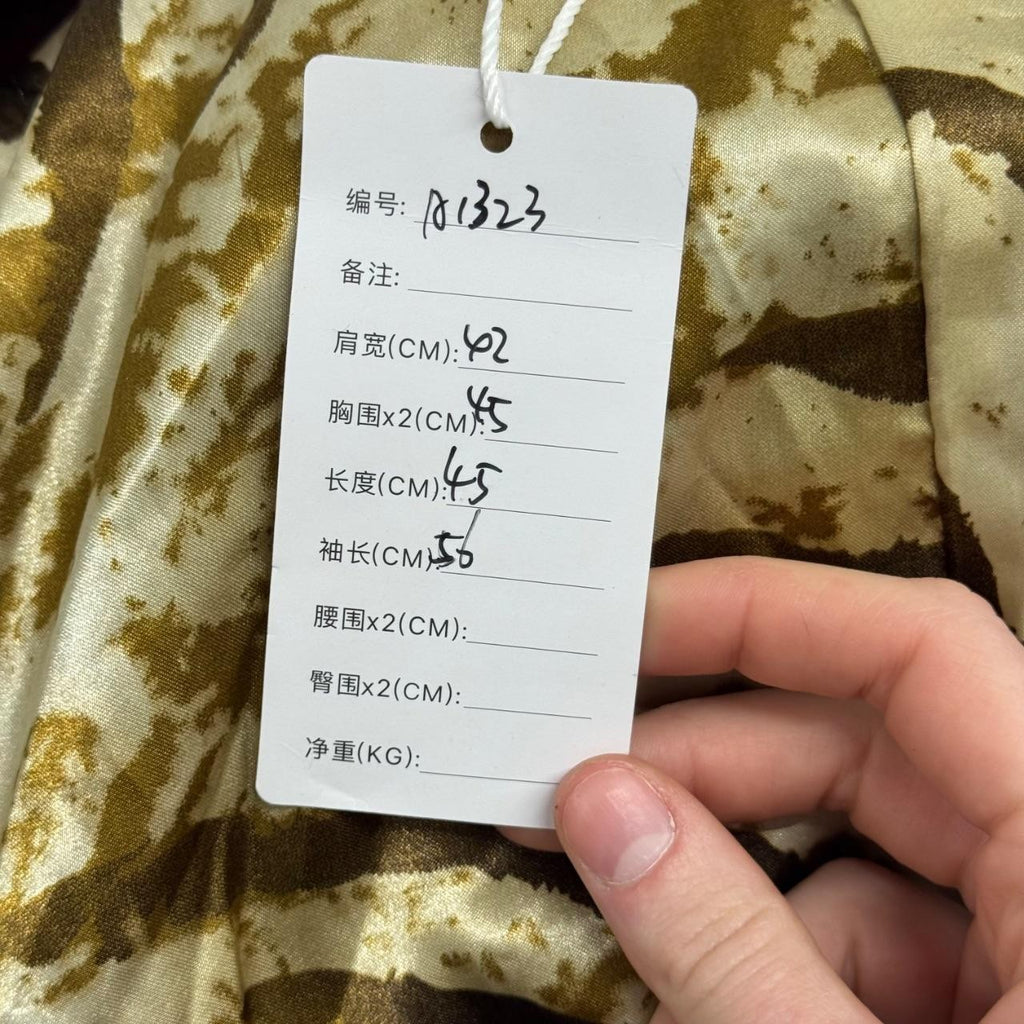 编号: A1323
备注:
肩宽(CM): 42
胸围x2(CM): 45
长度(CM): 45
袖长(CM): 56
腰围x2(CM):
臀围x2(CM):
净重(KG):